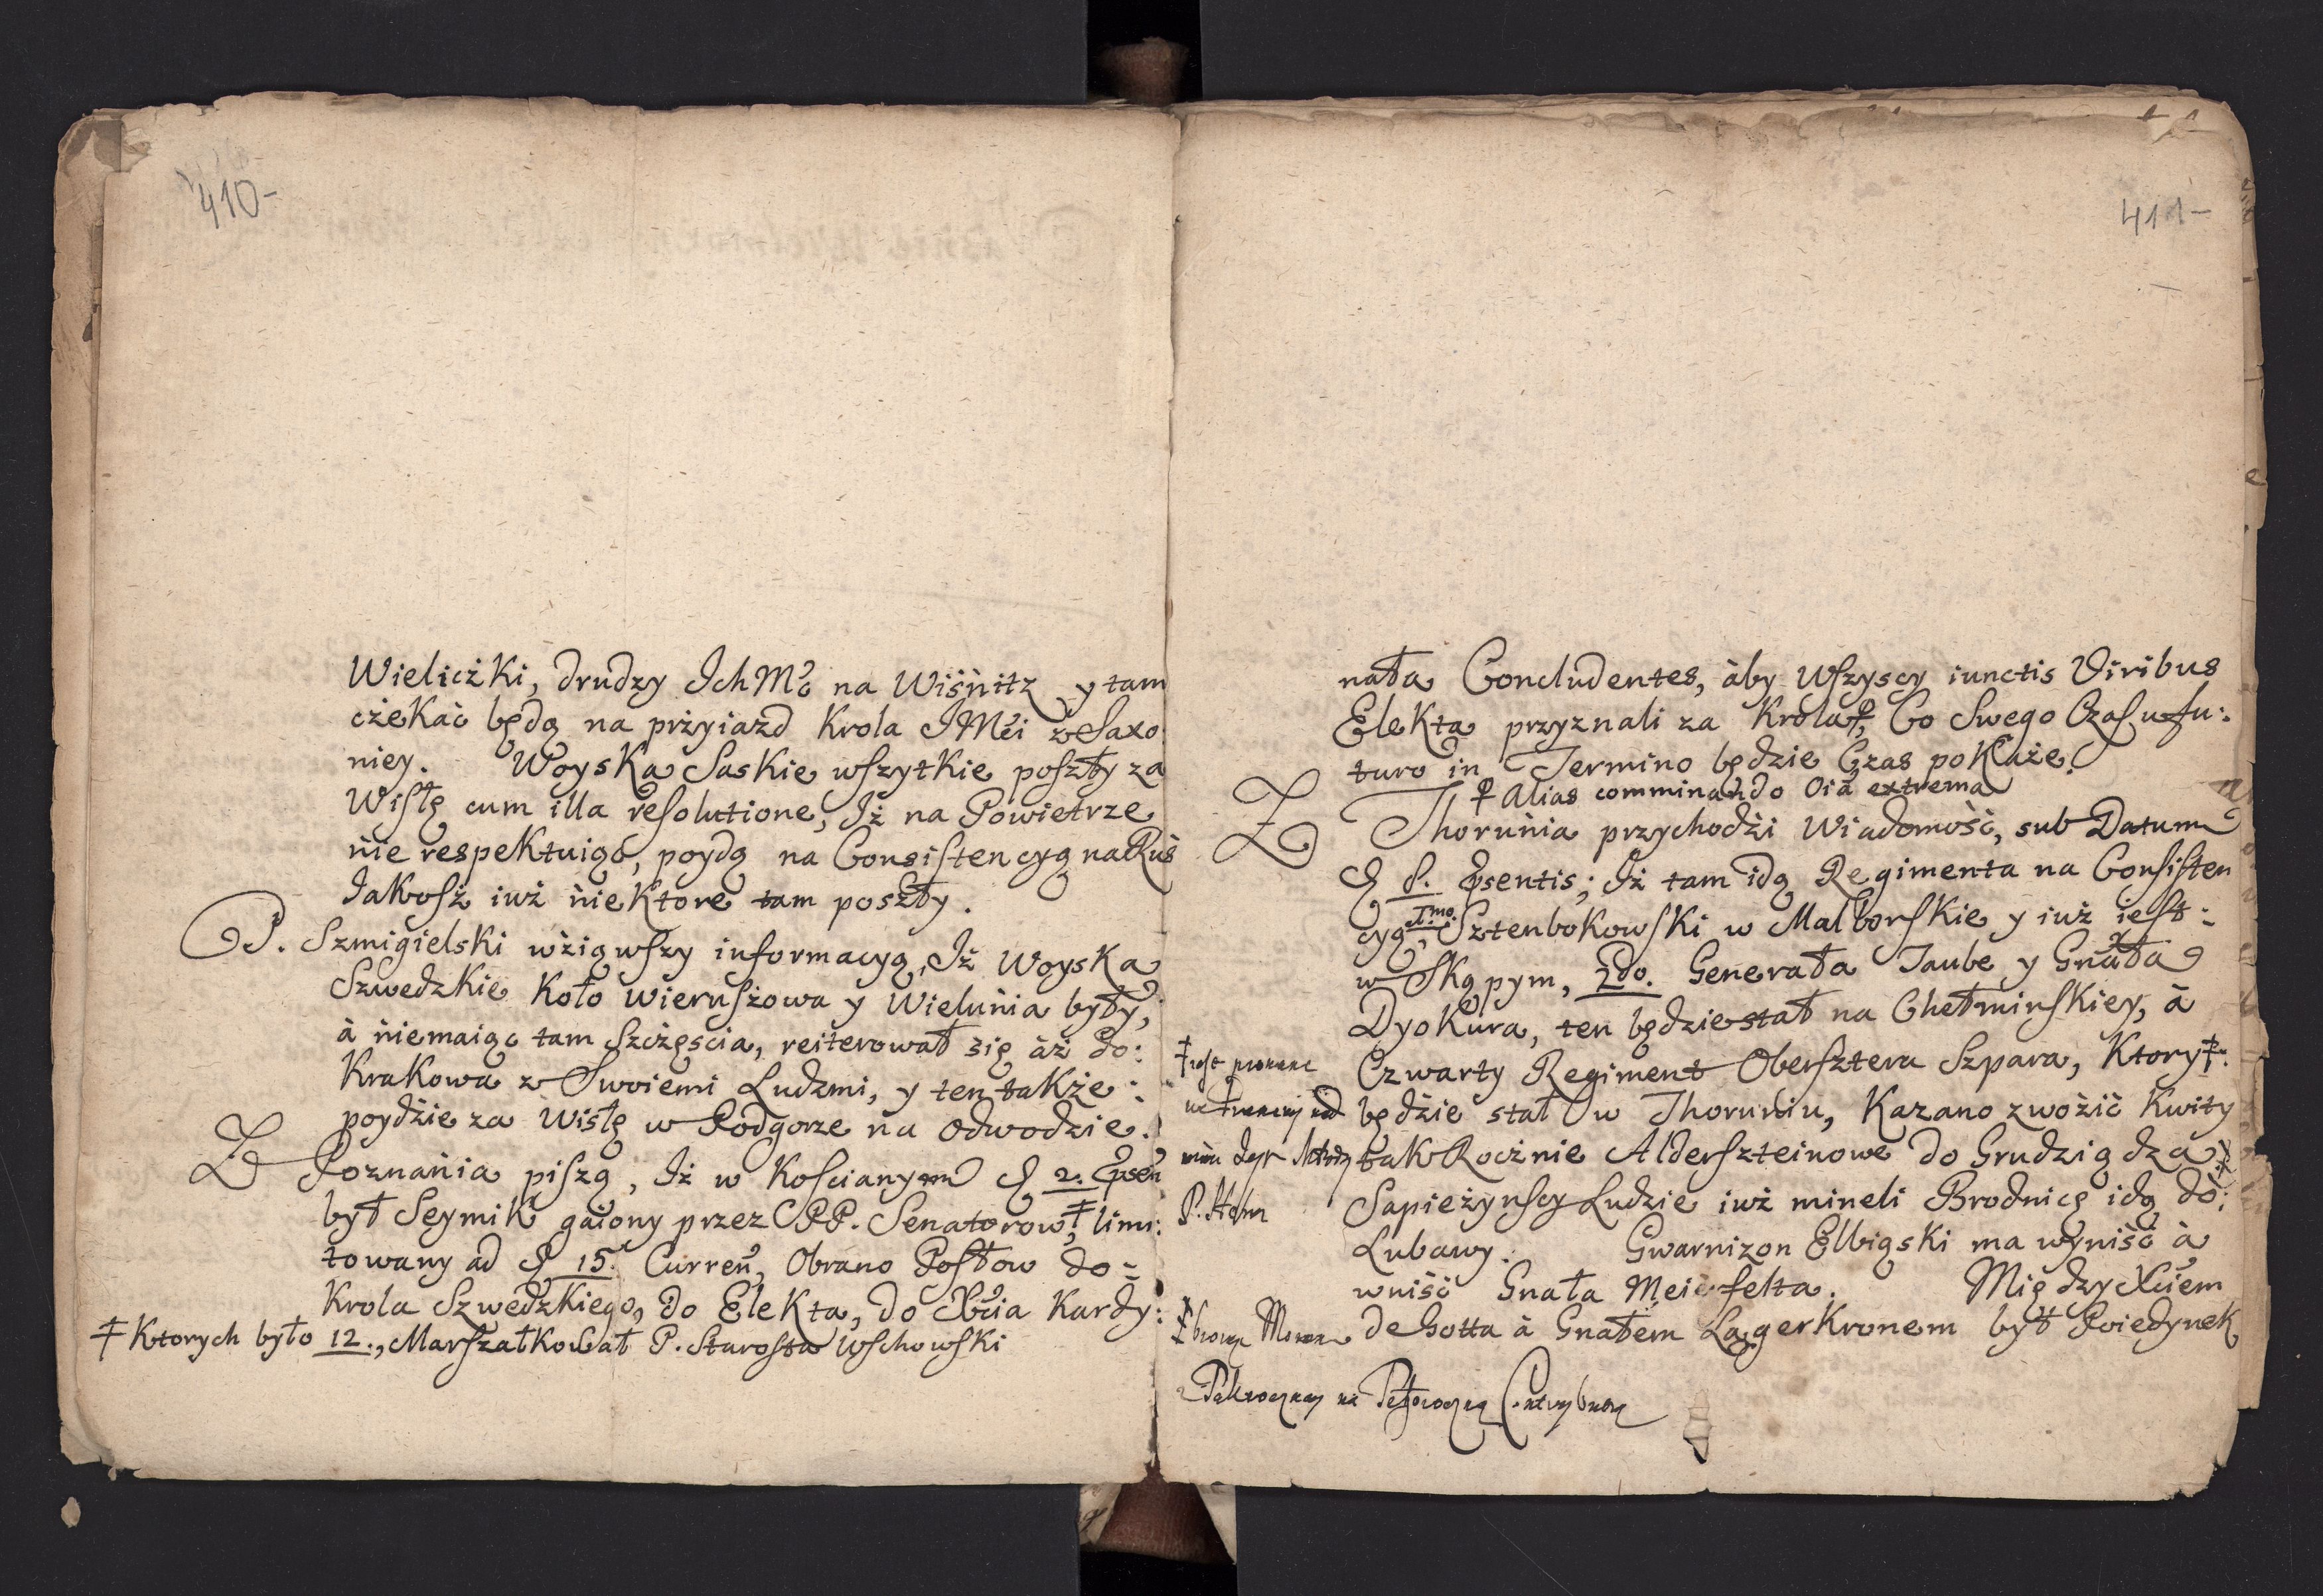 410-
Wieliczki, drudzy Ich Mć na Wiśnitz y tam
czekać będą na przyiazd Krola JMći z Saxo
niey. Woyska Saskie wszytkie poszły za
Wisłę cum illa resolutione, Iż na Powietrze
nie respektuiąc, poydą na Consistencyą na Ruś
Jakosz iuż niektore tam poszły.
P. Szmigielski wziąwszy informacyą, Iż Woyska
Szwedzkie koło Wieruszowa y Wielunia były,
à niemaiąc tam szczęscia, reiterował się aż do:
Krakowa z Swoiemi Ludzmi, y ten także:
poydzie za Wisłę w Podgorze na odwodzie.
Z Poznania piszą, Iż w Koscianym d 2. Epsen
był Seymik gaiony przez PP. Senatorow ‡, limi:
towany ad d 15. Curren, Obrano Posłow do:
Krola Szwedzkiego, do Elekta, do Xcia Kardy:
‡ Ktorych było 12., Marszałkował P. Starosta Wschowski
411-
nała Concludentes, àby Wszyscy iunctis Viribus
Elekta przyznali za Krola ‡, Co Swego Czasu fu:
turo in Termino będzie Czas pokaże.
‡ Alias comminando Oia extrema
Z Thorunia przychodzi Wiadomość, sub Datum
d 8. Epsentis; Iż tam idą Regimenta na Consisten
cyą, Imo. Sztenbokowski w Malborskie y iuż iest:
w Skąpym, 2do. Generała Taube y Gnała
Dyokura, ten będzie stał na Chełminskiey, à
Czwarty Regiment Obersztera Szpara, Ktory ‡
będzie stał w Thoruniu, Kazano zwozić Kwity
tak Rocznie Alderszteinowe do Grudziądza ‡
Sapieżynscy Ludzie iuż mineli Brodnicę idą do:
Lubawy. Gwarnizon Elbiąski ma wyniść à
wniść Gnała Meierfelta. Między Xciem
de Gotta à Gnałem Lagerkronem był Poiedynek